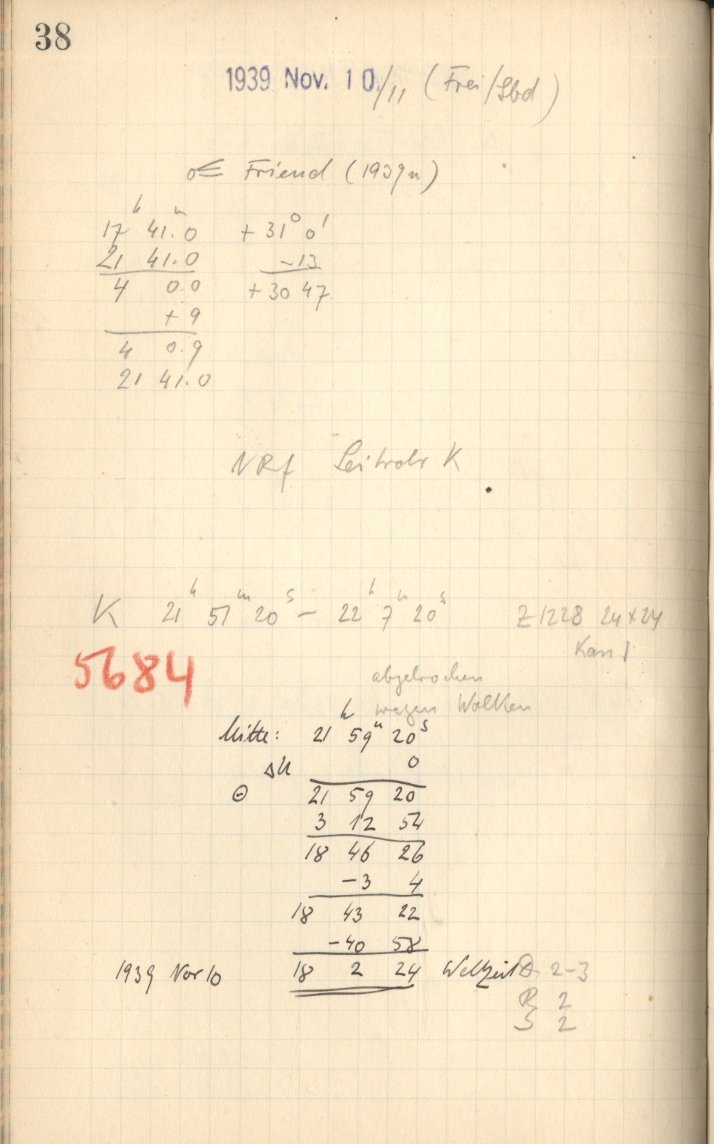 38
1939 Nov. 10./11 (Frei/Sbd)
Friend (1939n)
17h 41.m0 + 31° 0'
21 41.0 -13
4 0.0 + 30 47
+ 9
4 0.9
21 41.0
NRf Leitrohr K
K 21h 51m 20s - 22h 7m 20s Z1228 24x24
Kan 1
5684
abgebrochen
wegen Wolken
Mitte: 21h 59m 20s
Δu 0
⊙ 21 59 20
3 12 54
18 46 26
-3 4
18 43 22
-40 58
1939 Nov 10 18 2 24 Weltzeit D 2-3
R 2
S 2